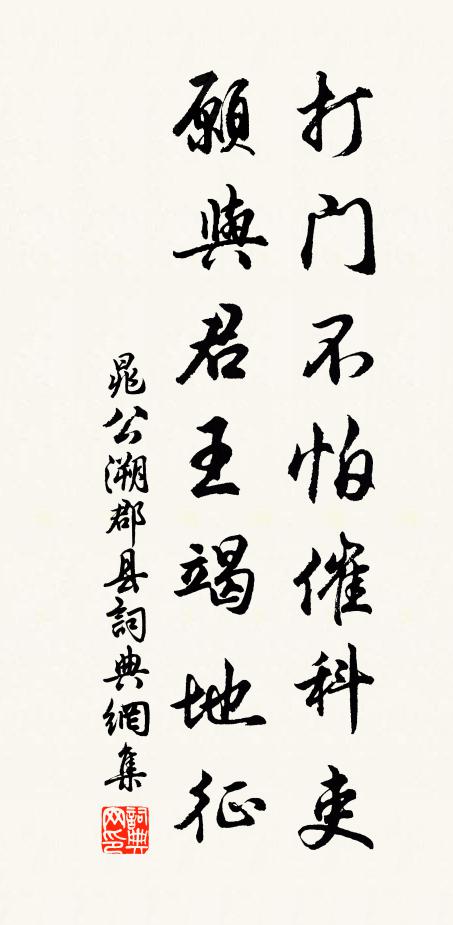 打门不怕催科吏
願與君王竭地征
晁公溯郡县詞典網集
詞典网印